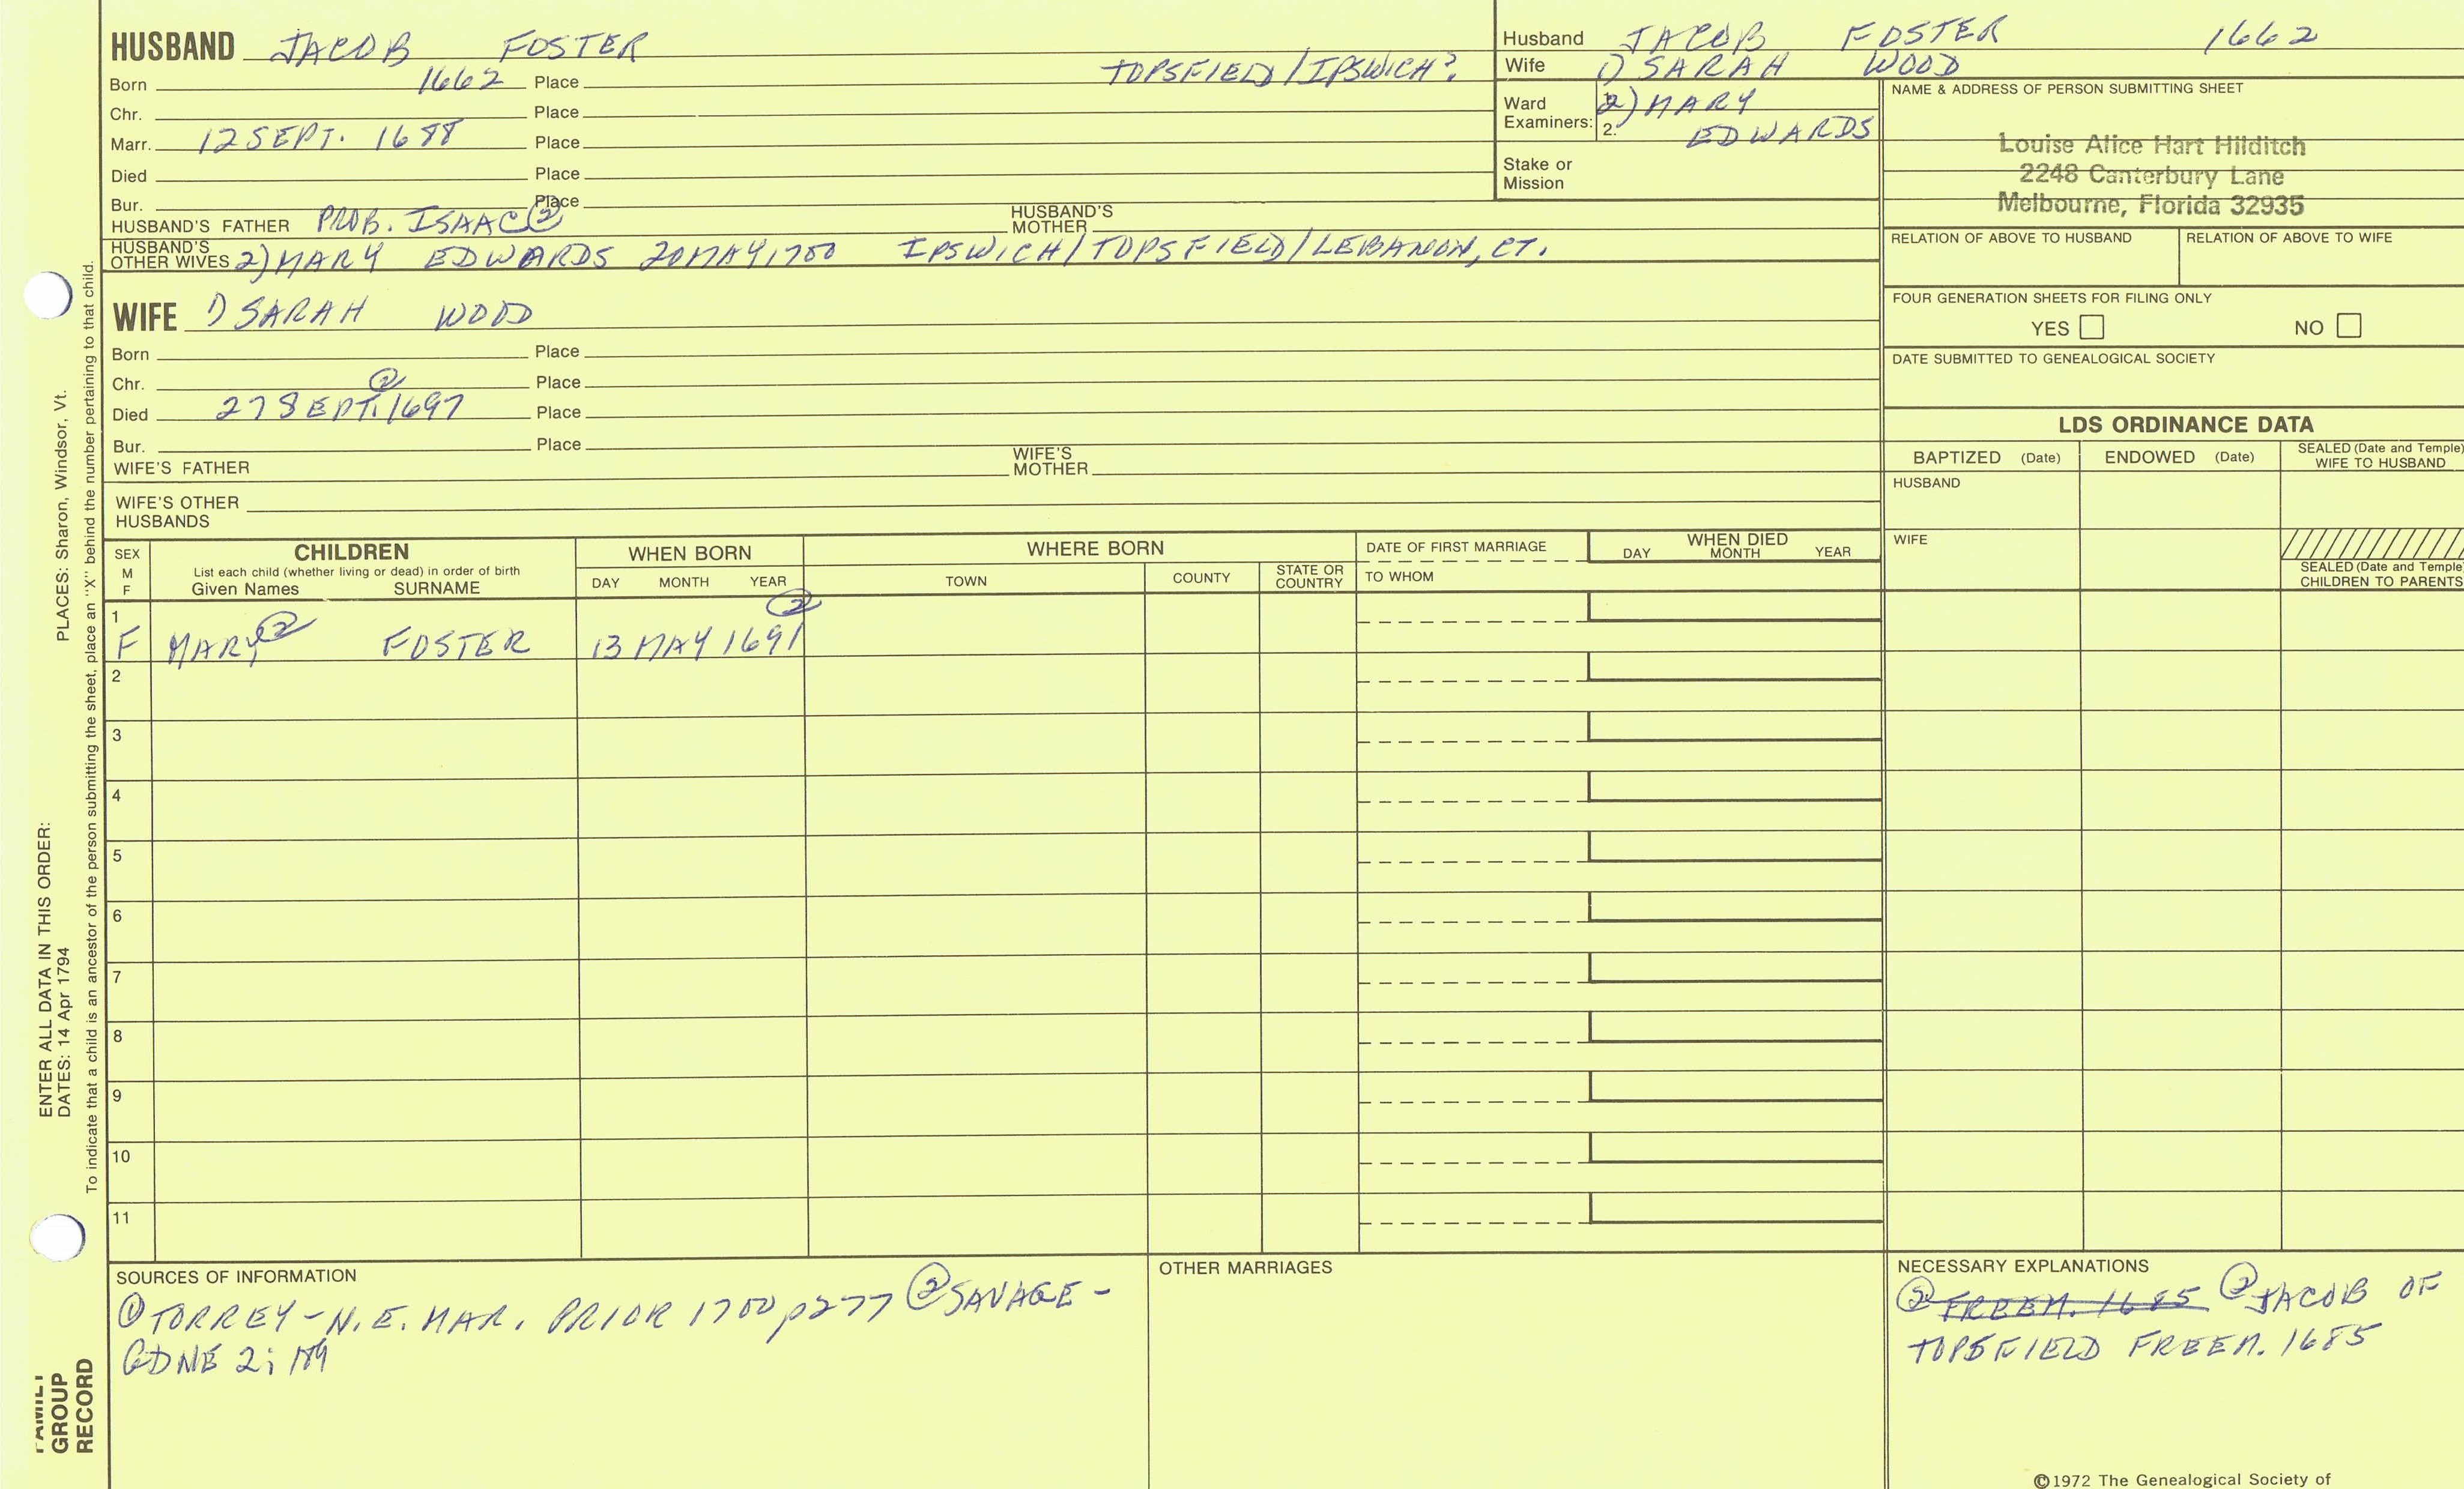 HUSBAND JACOB FOSTER
Born 1662 Place TOPSFIELD/IPSWICH?
Chr. Place
Marr. 12 SEPT. 1688 Place
Died Place
Bur. Place
HUSBAND'S FATHER PROB. ISAAC② HUSBAND'S MOTHER
HUSBAND'S OTHER WIVES 2) MARY EDWARDS 20 MAY, 1700 IPSWICH/TOPSFIELD/LEBANON, CT.
WIFE 1) SARAH WOOD
Born Place
Chr. Place
Died 27 SEPT. 1697 ② Place
Bur. Place
WIFE'S FATHER WIFE'S MOTHER
WIFE'S OTHER HUSBANDS
Husband JACOB FOSTER 1662
Wife 1) SARAH WOOD
Ward Examiners: 1. 2) MARY
2. EDWARDS
Stake or Mission
NAME & ADDRESS OF PERSON SUBMITTING SHEET
Louise Alice Hart Hilditch
2248 Canterbury Lane
Melbourne, Florida 32935
RELATION OF ABOVE TO HUSBAND RELATION OF ABOVE TO WIFE
FOUR GENERATION SHEETS FOR FILING ONLY
YES NO
DATE SUBMITTED TO GENEALOGICAL SOCIETY
LDS ORDINANCE DATA
BAPTIZED (Date) ENDOWED (Date) SEALED (Date and Temple) WIFE TO HUSBAND
HUSBAND
WIFE
SEALED (Date and Temple) CHILDREN TO PARENTS
SEX M F
CHILDREN
List each child (whether living or dead) in order of birth
Given Names SURNAME
WHEN BORN
DAY MONTH YEAR
WHERE BORN
TOWN COUNTY STATE OR COUNTRY
DATE OF FIRST MARRIAGE
TO WHOM
WHEN DIED
DAY MONTH YEAR
1
F MARY② FOSTER 13 MAY 1691 ②
2
3
4
5
6
7
8
9
10
11
SOURCES OF INFORMATION
① TORREY - N.E. MAR. PRIOR 1700 p277 ② SAVAGE -
GDNE 2; 189
OTHER MARRIAGES
NECESSARY EXPLANATIONS
② FREEM. 1685 ② JACOB OF
TOPSFIELD FREEM. 1685
©1972 The Genealogical Society of
PLACES: Sharon, Windsor, Vt.
ENTER ALL DATA IN THIS ORDER:
DATES: 14 Apr 1794
To indicate that a child is an ancestor of the person submitting the sheet, place an "X" behind the number pertaining to that child.
FAMILY
GROUP
RECORD